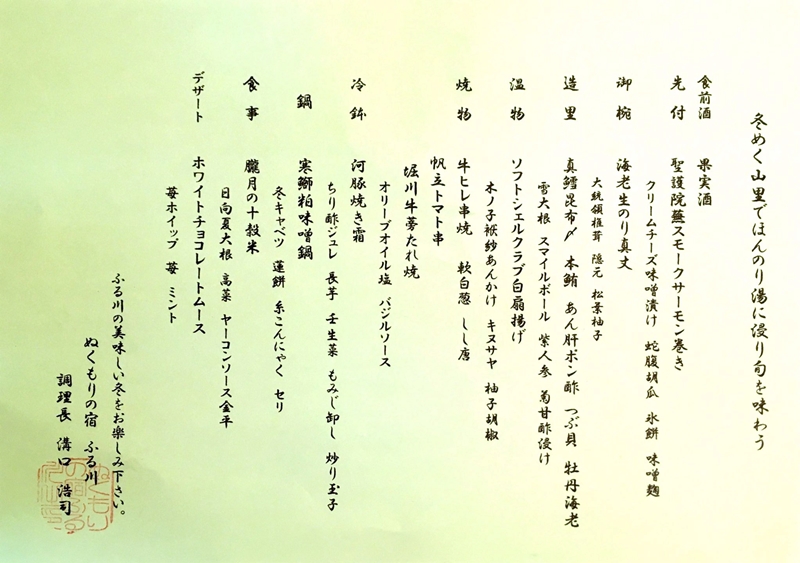 冬めく山里でほんのり湯に浸り旬を味わう
食前酒 果実酒
先付 聖護院蕪スモークサーモン巻き
クリームチーズ味噌漬け 蛇腹胡瓜 氷餅 味噌麹
御椀 海老生のり真丈
大統領椎茸 隠元 松葉柚子
造里 真鱈昆布〆 本鮪 あん肝ポン酢 つぶ貝 牡丹海老
雪大根 スマイルボール 紫人参 菊甘酢浸け
温物 ソフトシェルクラブ白扇揚げ
木ノ子袱紗あんかけ キヌサヤ 柚子胡椒
焼物 牛ヒレ串焼 軟白葱 しし唐
帆立トマト串
堀川牛蒡たれ焼
オリーブオイル塩 バジルソース
冷鉢 河豚焼き霜
ちり酢ジュレ 長芋 壬生菜 もみじ卸し 炒り玉子
鍋 寒鰤粕味噌鍋
冬キャベツ 蓮餅 糸こんにゃく セリ
食事 朧月の十穀米
日向夏大根 高菜 ヤーコンソース金平
デザート ホワイトチョコレートムース
苺ホイップ 苺 ミント
ふる川の美味しい冬をお楽しみ下さい。
ぬくもりの宿 ふる川
調理長 溝口 浩司